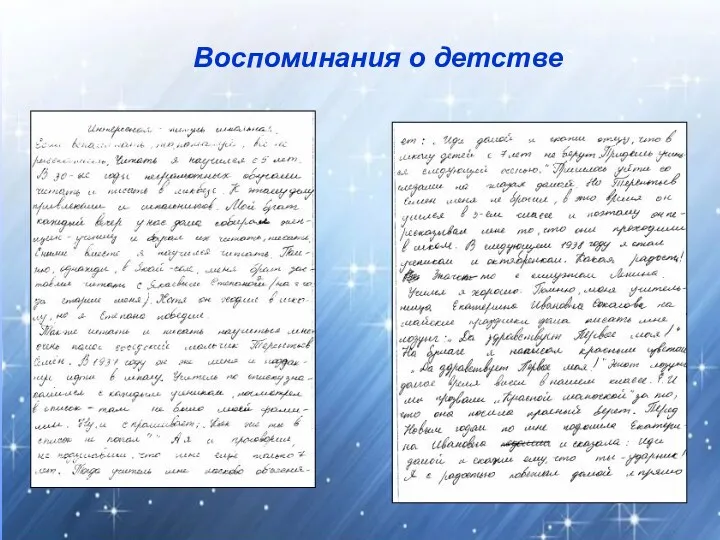 Воспоминания о детстве
Интересная - жизнь школьная.
Если вспоминать, то, пожалуй, всё не
рассказать. Читать я научился с 5 лет.
В 30-ые годы неграмотных обучали
читать и писать в ликбезе. К этому делу
привлекали и школьников. Мой брат
каждый вечер у нас дома собирал жен-
щин-учениц и обучал их читать, писать.
вместе я научился читать. Пом-
ню, однажды, в
ставил читать с Яковым Степановым (на 2 го-
да старше меня). Хотя он ходил в шко-
лу, но я Степана победил.
Также читать и писать научиться мне
очень помог соседский мальчик Терентьев
Семен. В 1937 году он же меня и
идти в школу. Учитель по списку зна-
комился с каждым учеником, посмотрел
в список - там не было моей фами-
лии. Ну и спрашивает: "Как же ты в
список не попал?" А я и
не подумавши, что мне еще только 7
лет. Тогда учитель мне ласково объясня-
ет: "Иди домой и скажи отцу, что в
школу детей с 7 лет не берут. Придешь учить-
ся следующей осенью." Пришлось уйти со
слезами на глазах домой. Но Терентьев
Семен меня не бросил, в это время он
учился в 3-ем классе и поэтому он пе-
ресказывал мне то, что они проходили
в школе. В следующем 1938 году я стал
учеником и октябренком. Какая радость!
Значок-то с силуэтом Ленина.
Учился я хорошо. Помню, моя учитель-
ница Екатерина Ивановна Соколова на
майские праздники дала писать мне
лозунг: "Да здравствует Первое мая!"
На бумаге я написал красным цветом
"Да здравствует Первое мая!" Этот лозунг
долгое время висел в нашем классе. Е.И
мы прозвали "Красной шапочкой" за то,
что она носила красный берет. Перед
Новым годом ко мне подошла Екатери-
на Ивановна и сказала: Иди
домой и скажи ему, что ты - ударник!
Я с радостью побежал домой и прямо